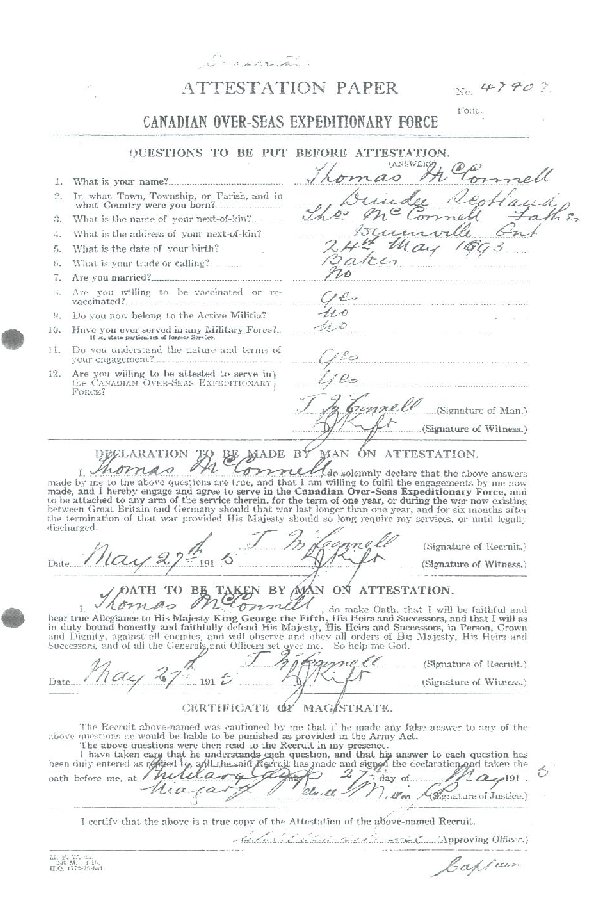 ATTESTATION PAPER
No. 47907
Folio.
CANADIAN OVER-SEAS EXPEDITIONARY FORCE
QUESTIONS TO BE PUT BEFORE ATTESTATION.
(ANSWERS)
1. What is your name? Thomas McConnell
2. In what Town, Township, or Parish, and in
what Country were you born? Dundee Scotland
3. What is the name of your next-of-kin? Thos McConnell Father
4. What is the address of your next-of-kin? Ont
5. What is the date of your birth? 24th May 1893
6. What is your trade or calling? Baker
7. Are you married? No
8. Are you willing to be vaccinated or re-
vaccinated? Yes
9. Do you now belong to the Active Militia? No
10. Have you ever served in any Military Force? No
If so, state particulars of former Service.
11. Do you understand the nature and terms of
your engagement? Yes
12. Are you willing to be attested to serve in
the CANADIAN OVER-SEAS EXPEDITIONARY
FORCE? Yes
T McConnell (Signature of Man.)
(Signature of Witness.)
DECLARATION TO BE MADE BY MAN ON ATTESTATION.
I, Thomas McConnell, do solemnly declare that the above answers
made by me to the above questions are true, and that I am willing to fulfil the engagements by me now
made, and I hereby engage and agree to serve in the Canadian Over-Seas Expeditionary Force, and
to be attached to any arm of the service therein, for the term of one year, or during the war now existing
between Great Britain and Germany should that war last longer than one year, and for six months after
the termination of that war provided His Majesty should so long require my services, or until legally
discharged.
T McConnell (Signature of Recruit.)
Date May 27th 1915 (Signature of Witness.)
OATH TO BE TAKEN BY MAN ON ATTESTATION.
I, Thomas McConnell, do make Oath, that I will be faithful and
bear true Allegiance to His Majesty King George the Fifth, His Heirs and Successors, and that I will as
in duty bound honestly and faithfully defend His Majesty, His Heirs and Successors, in Person, Crown
and Dignity, against all enemies, and will observe and obey all orders of His Majesty, His Heirs and
Successors, and of all the Generals and Officers set over me. So help me God.
T McConnell (Signature of Recruit.)
Date May 27th 1915 (Signature of Witness.)
CERTIFICATE OF MAGISTRATE.
The Recruit above-named was cautioned by me that if he made any false answer to any of the
above questions he would be liable to be punished as provided in the Army Act.
The above questions were then read to the Recruit in my presence.
I have taken care that he understands each question, and that his answer to each question has
been duly entered as replied to, and the said Recruit has made and signed the declaration and taken the
oath before me, at Military Camp this 27th day of May 1915
Niagara (Signature of Justice.)
I certify that the above is a true copy of the Attestation of the above-named Recruit.
(Approving Officer)
Captain